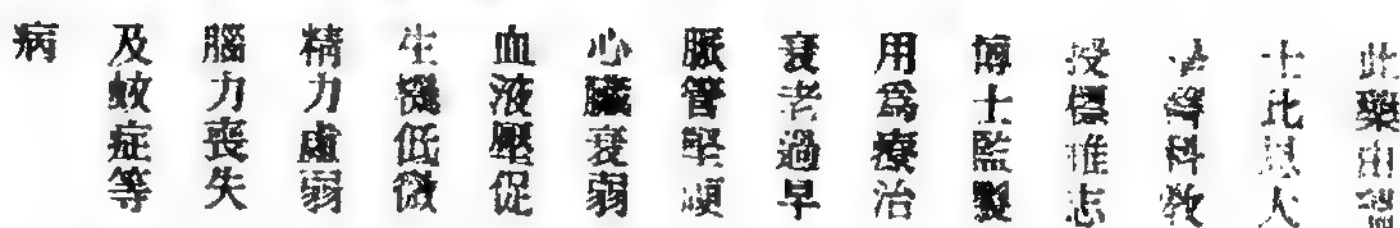 此藥由瑞
士比人
學科教
授標惟志
博士監製
用為療治
衰老過早
脈管堅硬
心臟衰弱
血液壓促
生機低微
精力虛弱
腦力喪失
及蚊症等
病